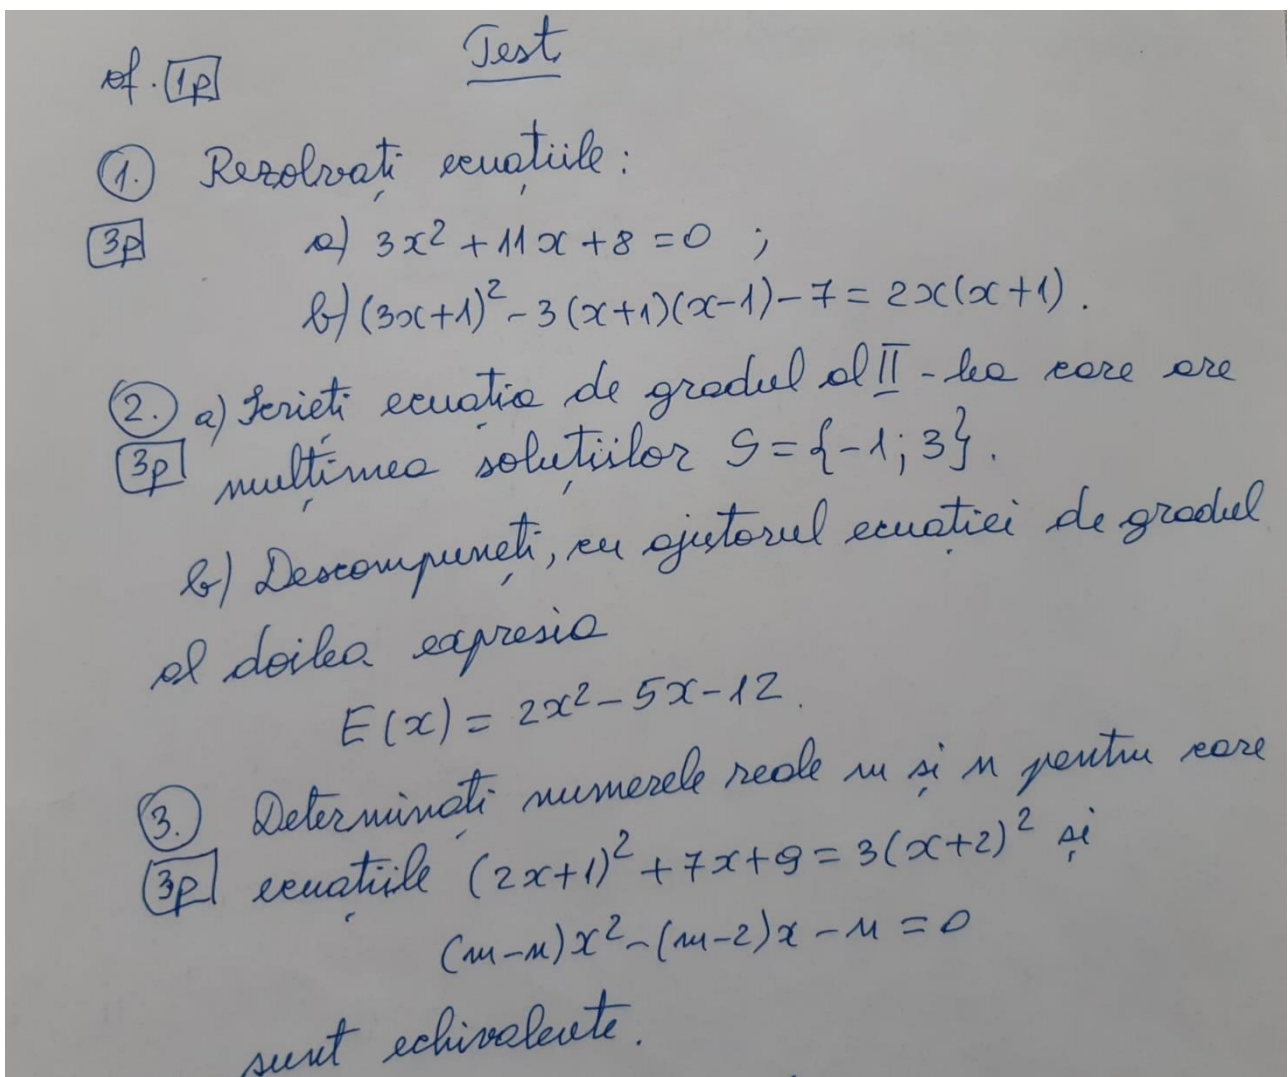 Test
of. 1p
1. Rezolvați ecuațiile:
3p a) 3x² + 11x + 8 = 0 ;
b) (3x+1)² - 3(x+1)(x-1) - 7 = 2x(x+1).
2. a) Scrieți ecuația de gradul al II-lea care are
3p mulțimea soluțiilor S = {-1; 3}.
b) Descompuneți, cu ajutorul ecuației de gradul
al doilea expresia
E(x) = 2x² - 5x - 12.
3. Determinați numerele reale m și n pentru care
3p ecuațiile (2x+1)² + 7x + 9 = 3(x+2)² și
(m-n)x² - (m-2)x - n = 0
sunt echivalente.